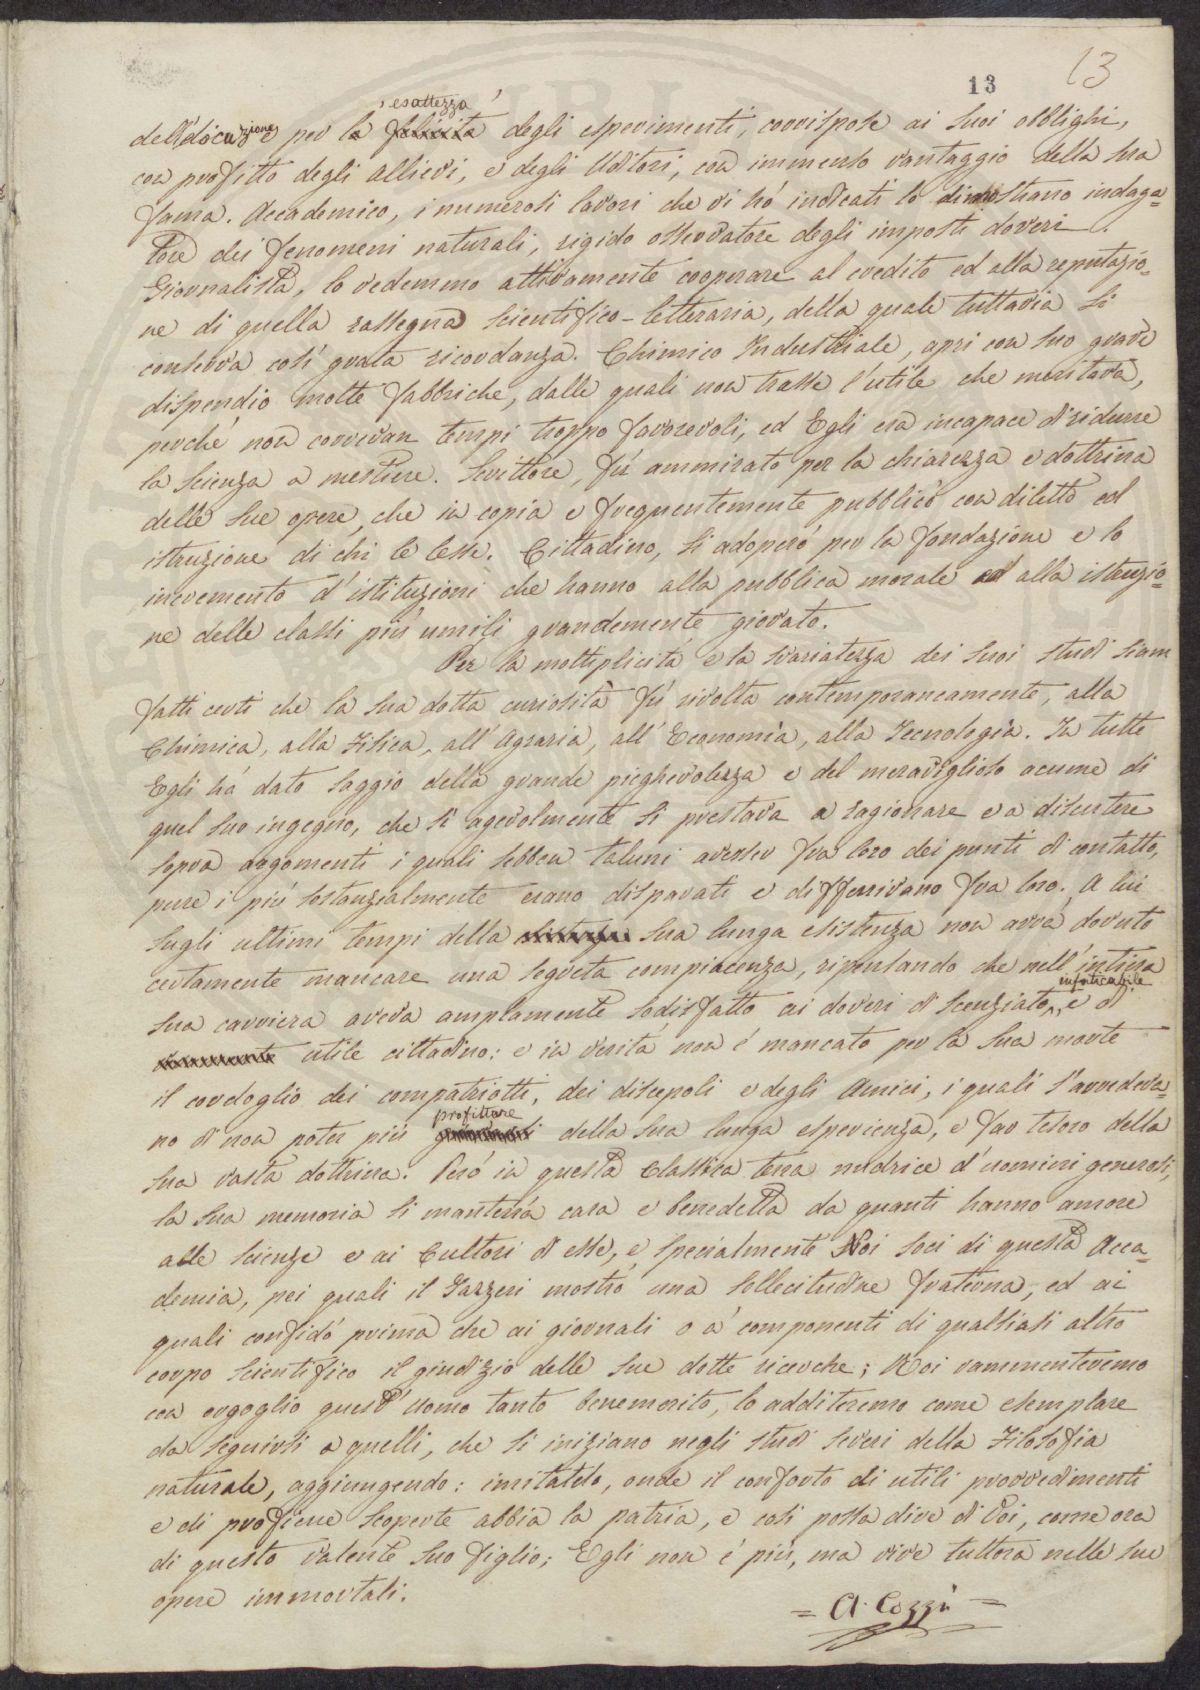 13
13
esattezza
dell'docuzione per la felicità degli esperimenti, corrispose ai suoi obblighi,
con profitto degli allievi, e degli Uditori, con immenso vantaggio della sua
fama. Accademico, i numerosi lavori che vi hó indicati lo dimostrano indaga=
tore dei fenomeni naturali, rigido osservatore degli imposti doveri.
Giornalista, lo vedemmo attivamente cooperare al credito ed alla reputazio=
ne di quella rassegna scientifico-letteraria, della quale tuttavia si
conserva cosí grata ricordanza. Chimico Industriale, aprí con suo grave
dispendio molte fabbriche, dalle quali non trasse l'utile che meritava,
perché non correvan tempi troppo favorevoli, ed Egli era incapace di ridurre
la scienza a mestiere. Scrittore, fú ammirato per la chiarezza e dottrina
delle sue opere, che in copia e frequentemente pubblicó con diletto ed
istruzione di chi le lesse. Cittadino, si adoperó per la fondazione e lo
incremento d'istituzioni che hanno alla pubblica morale ed alla istruzio=
ne delle classi piú umili grandemente giovato.
Per la moltiplicitá e la svariatezza dei suoi studi siam
fatti certi che la sua dotta curiositá fú rivolta contemporaneamente, alla
Chimica, alla Fisica, all'Agraria, all'Economia, alla Tecnologia. In tutte
Egli há dato saggio della grande pieghevolezza e del meraviglioso acume di
quel suo ingegno, che sí agevolmente si prestava a ragionare e a discutere
sopra argomenti i quali sebben taluni avesser fra loro dei punti di contatto,
pure i piú sostanzialmente erano disparati e differivano fra loro. A lui
sugli ultimi tempi della sua lunga esistenza non avrá dovuto
certamente mancare una segreta compiacenza, ripensando che nell'intiera
sua carriera aveva amplamente sodisfatto ai doveri di scenziato infaticabile, e di
utile cittadino: e in veritá non é mancato per la sua morte
il cordoglio dei compatriotti, dei discepoli e degli Amici, i quali s'avvedeva=
no di non poter piú profittare della sua lunga esperienza, e far tesoro della
sua vasta dottrina. Peró in questa classica terra nudrice d'uomini generosi,
la sua memoria si manterrá cara e benedetta da quanti hanno amore
alle scienze e ai Cultori di esse, e specialmente Noi soci di questa Acca=
demia, pei quali il Gazzeri mostró una sollecitudine fraterna, ed ai
quali confidó prima che ai giornali o a' componenti di qualsiasi altro
corpo scientifico il giudizio delle sue dotte ricerche; Noi rammenteremo
con orgoglio quest'Uomo tanto benemerito, lo additeremo come esemplare
da seguirsi a quelli, che si iniziano negli studi severi della Filosofia
naturale, aggiungendo: imitatelo, onde il conforto di utili provvedimenti
e di proficue scoperte abbia la patria, e cosí possa dire di Voi, come ora
di questo valente suo figlio; Egli non é piú, ma vive tuttora nelle sue
opere immortali.
= A. Cozzi =